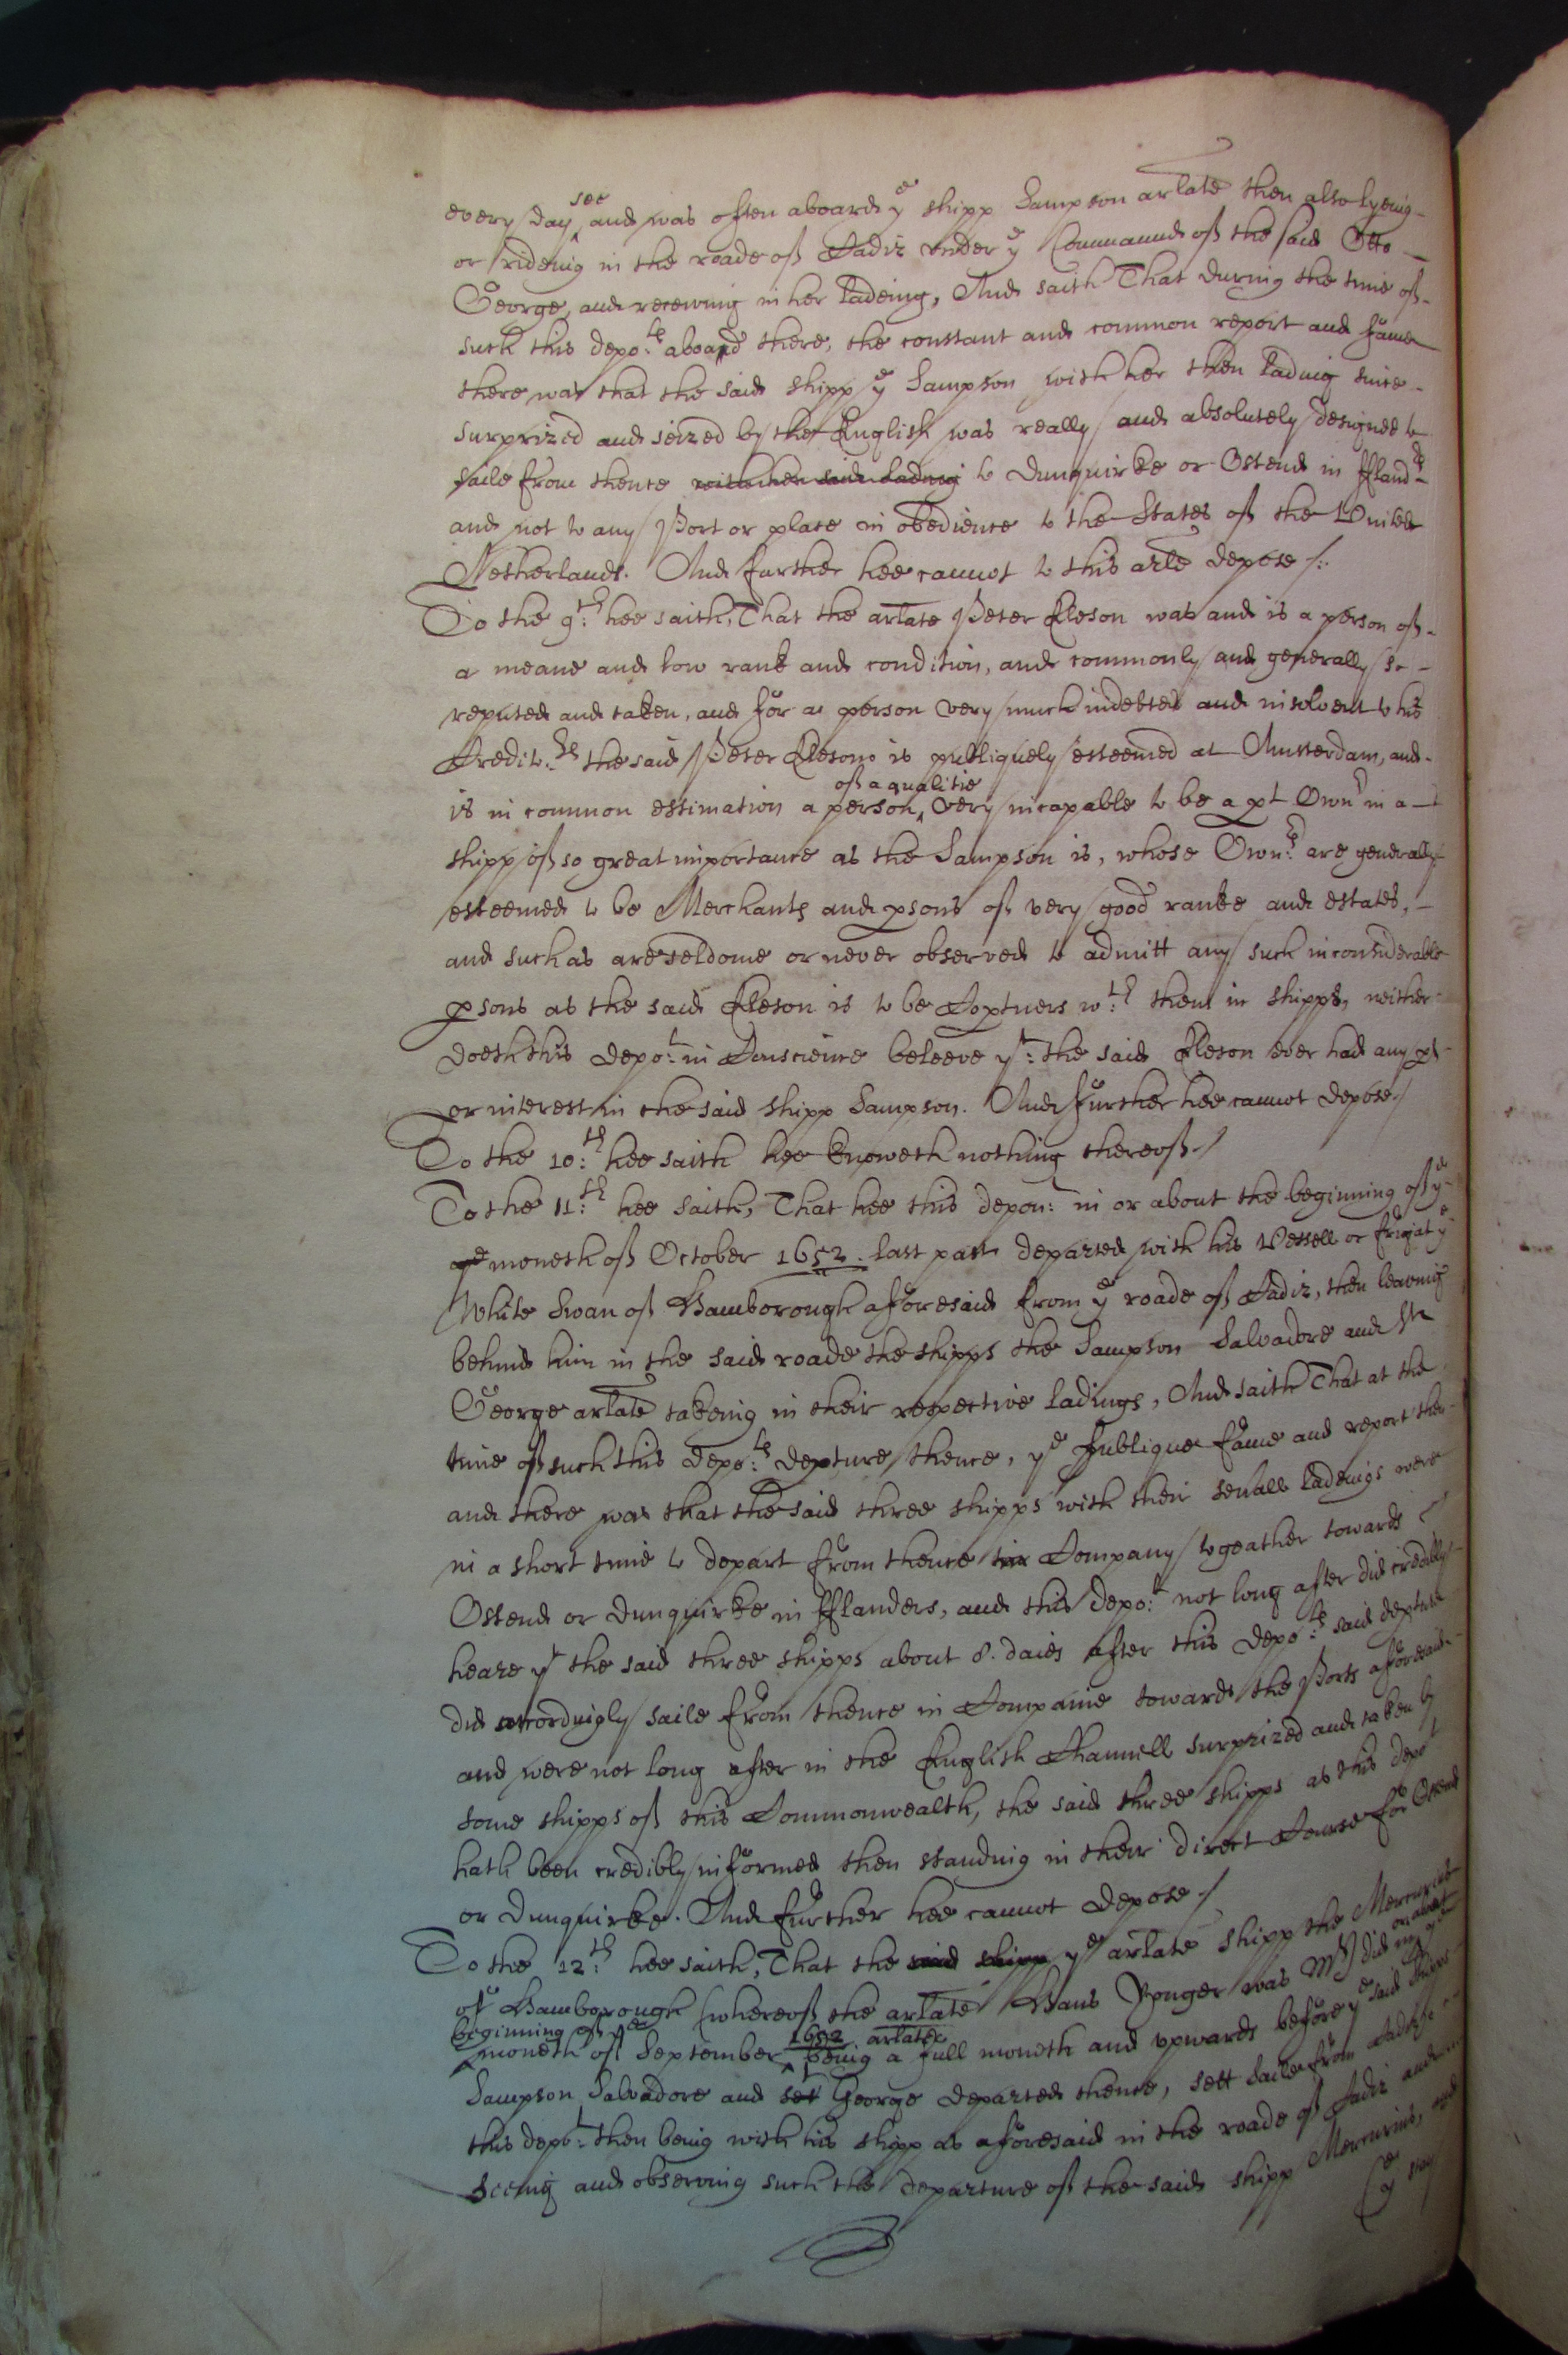 every day see and was often aboard ye shipp Sampson arlate then also lyeing
or rideing in the roade of Cadiz under ye Commaund of the said Otto
George, and receiving in her ladeing, And saith That during the time of
such this depo:ts aboad there, the constant and common report and fame
there was that the said shipp ye Sampson with her then lading since
surprized and seized by the English was really and absolutely designed to
saile from thence with her said lading to Dunquirke or Ostend in Fland:rs
and not to any Port or place in obedience to the States of the United
Netherlands. And further hee cannot to this arle depose /:
To the 9:th hee saith, That the arlate Peter Cleson was and is a person of
a meane and low rank and condition, and commonly and generally so
reputed and taken, and for a person very much indebted and insolvent to his
Credit:rs the said Peter Cleson is publiquely esteemed at Amsterdam, and
is in common estimation a person of a qualitie very incapable to be a pt Own:r in a
shipp of so great importance as the Sampson is, whose Own:rs are generally
esteemed to be Merchants and psons of very good ranke and estates,
and such as are seldome or never observed to admitt any such inconsiderable
psons as the said Cleson is to be Coptners w:th them in shipps, neither
doeth this depo:t in Conscience beleeve y:t the said Cleson ever had any pt
or interest in the said shipp Sampson. And further hee cannot depose /
To the 10:th hee saith hee knoweth nothing thereof /
To the 11:th hee saith, That hee this depon:t in or about the beginning of ye
moneth of October 1652. last past departed with his Vessell or frigat ye
White Swan of Hamborough aforesaid from ye roade of Cadiz, then leaveing
behind him in the said roade the shipps the Sampson Salvadore and St
George arlate takeing in their respective ladings, And saith That at the
time of such this depo:ts depture thence, ye publique fame and report then
and there was that the said three shipps with their seuall ladeings were
in a short time to depart from thence in Company togeather towards
Ostend or Dunquirke in Fflanders, and this depo:t not long after did credibly
heare yt the said three shipps about 8. daies after this depo:ts said depture
did accordingly saile from thence in Companie towards the Ports aforesaid
and were not long after in the English Channell surprized and taken by
some shipps of this Commonwealth, the said three shipps as this depot
hath been credibly informed then standing in their direct Course for Ostend
or Dunquirke. And further hee cannot depose /
To the 12:th hee saith, That the said shipp ye arlate shipp the Mercurius
of Hamborough (whereof the arlate Hans Yonger was Mr) did in or about ye
beginning of ye
moneth of September 1652 arlate being a full moneth and upwards before ye said shipps
Sampson Salvadore and set George departed thence, sett saile from Cadiz
this depo:t then being with his shipp as aforesaid in the roade of Cadiz and
seeing and observing such the departure of the said shipp Mercurius, and